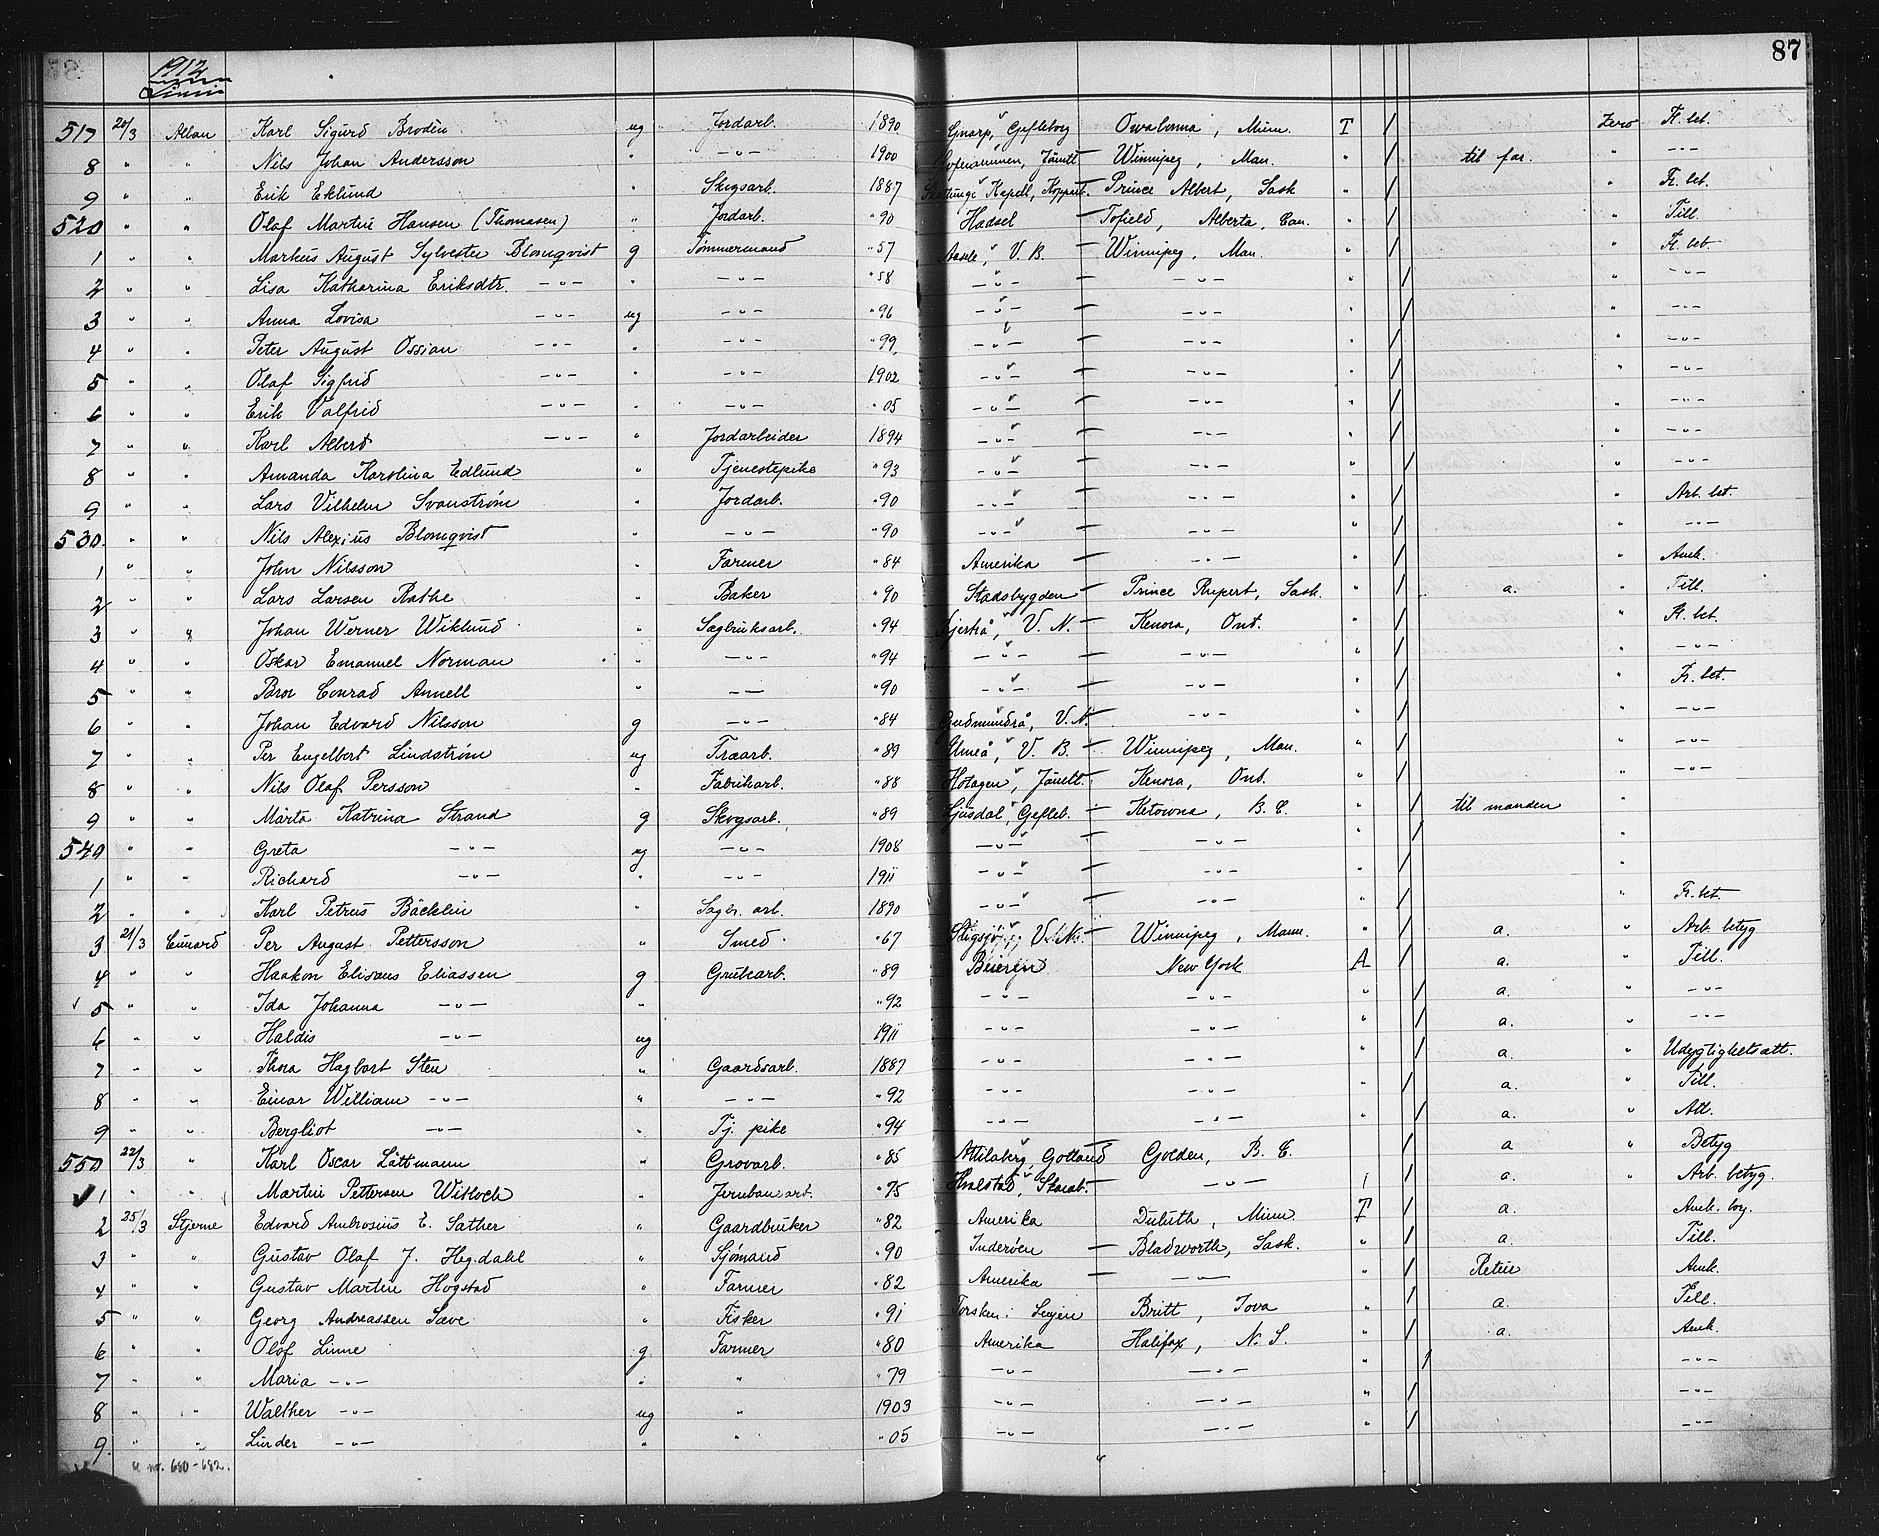 87
1912
517 20/3 Allan Karl Sigurd Brodén ug Jordarb. 1890 Gnarp, Gefleborg Owatonna, Minn. T / Zero Fr. bet.
8 " " Nils Johan Andersson " -"- 1900 Jämtl. Winnipeg, Man. " / til far. " -"-
9 " " Erik Eklund " Skogsarb. 1887 Kapell, Koppart. - Prince Albert, Sask " / " Fr. bet.
520 " " Olaf Martin Hansen (Thomasen) " Jordarb. " 90 Hadsel - Tofield, Alberta, Can. " / " Till.
1 " " Markus August Sylvester Blomqvist g Tømmermand " 57 Aasele, V. B. - Winnipeg, Man. " / " Fr. bet.
2 " " Lisa Katharina Eriksdtr. -"- " -"- " 58 -"- - -"- " / " -"-
3 " " Anna Lovisa -"- ug -"- " 96 -"- - -"- " / " -"-
4 " " Peter August Ossian -"- " -"- " 99 -"- - -"- " / " -"-
5 " " Olaf Sigfrid -"- " -"- 1902 -"- - -"- " / " -"-
6 " " Erik Valfrid -"- " -"- " 05 -"- - -"- " / " -"-
7 " " Karl Albert -"- " Jordarbeider 1894 -"- - -"- " / " -"-
8 " " Amanda Karolina Edlund " Tjenestepike " 93 -"- - -"- " / " -"-
9 " " Lars Vilhelm Svanstrøm " Jordarb. " 90 -"- - -"- " / " Arb. bet.
530 " " Nils Alexius Blomqvist " -"- " 90 -"- - -"- " / " -"-
1 " " John Nilsson " Farmer " 84 Amerika - -"- " / " Amk.
2 " " Lars Larsen Rathe " Baker " 90 Stadsbygden - Prince Rupert, Sask. " / a. " Till.
3 " " Johan Werner Wiklund " Sagbruksarb. " 94 V. N. - Kenora, Ont. " / " Fr. bet.
4 " " Oskar Emanuel Norman " -"- " 94 -"- - -"- " / " -"-
5 " " Bror Conrad Annell " -"- " 90 -"- - -"- " / " Fr. bet.
6 " " Johan Edvard Nilsson g -"- " 84 Gudmundrå, V. N. - -"- " / " -"-
7 " " Per Engelbert Lindstrøm ug Traarb. " 89 Umeå, V. B. - Winnipeg, Man. " / " -"-
8 " " Nils Olaf Persson " Fabrikarb. " 88 Hotagen, Jämtl. - Kenora, Ont. " / " -"-
9 " " Märta Katrina Strand g Skogsarb. " 89 Ljusdal, Gefleb. - Ketowna, B. C. " / til manden "
540 " " Greta -"- ug -"- 1908 -"- - -"- " / "
1 " " Richard -"- " -"- 1911 -"- - -"- " / "
2 " " Karl Petrus Bäcklin " Sagbr. arb. 1890 -"- - -"- " / " Fr. bet.
3 21/3 Cunard Per August Pettersson " Smed " 67 Stigsjö, V. N. - Winnipeg, Mann. " / a. " Arb. betyg
4 " " Haakon Elisæus Eliassen g Grubearb. " 89 Beieren New York A / a. " Till.
5 " " Ida Johanna -"- " " 92 -"- -"- " / a. " -"-
6 " " Haldis -"- ug 1911 -"- -"- " / a. " -"-
7 " " Thora Hagbart Sten " Gaardsarb. 1887 -"- -"- " / a. " Udygtighetsatt.
8 " " Einar William -"- " -"- " 92 -"- -"- " / a. " Till.
9 " " Bergliot -"- " Tj. pike " 94 -"- -"- " / a. " Att.
550 22/3 " Karl Oscar Lättmann " Grovarb. " 85 Gotland - Golden, B. C. / a " Betyg
1 " " Martin Pettersen Witloch " Jernbanearb. " 75 Skarab. - -"- / a. " Arb. betyg.
2 25/3 Stjerne Edvard Ambrosius E. Sather " Gaardbruker " 82 Amerika Duluth, Minn. T / a. Amk. bog.
3 " " Gustav Olaf J. Hegdahl " Sjømand " 90 Inderøen - Bladworth, Sask. " / a. Till.
4 " " Gustav Martin Hogstad " Farmer " 82 Amerika - -"- " / Retur Amk.
5 " " Georg Andreassen Save " Fisker " 91 Torsken i Senjen Britt, Iova " / a. Till.
6 " " Olof Linne g Farmer " 80 Amerika Halifax, N. S. " / a. Amk.
7 " " Maria -"- " " " 79 -"- -"- " / -"-
8 " " Walther -"- ug " 1903 -"- -"- " / -"-
9. " " Linder -"- " " " 05 -"- -"- " / -"-
nr. 680-682.